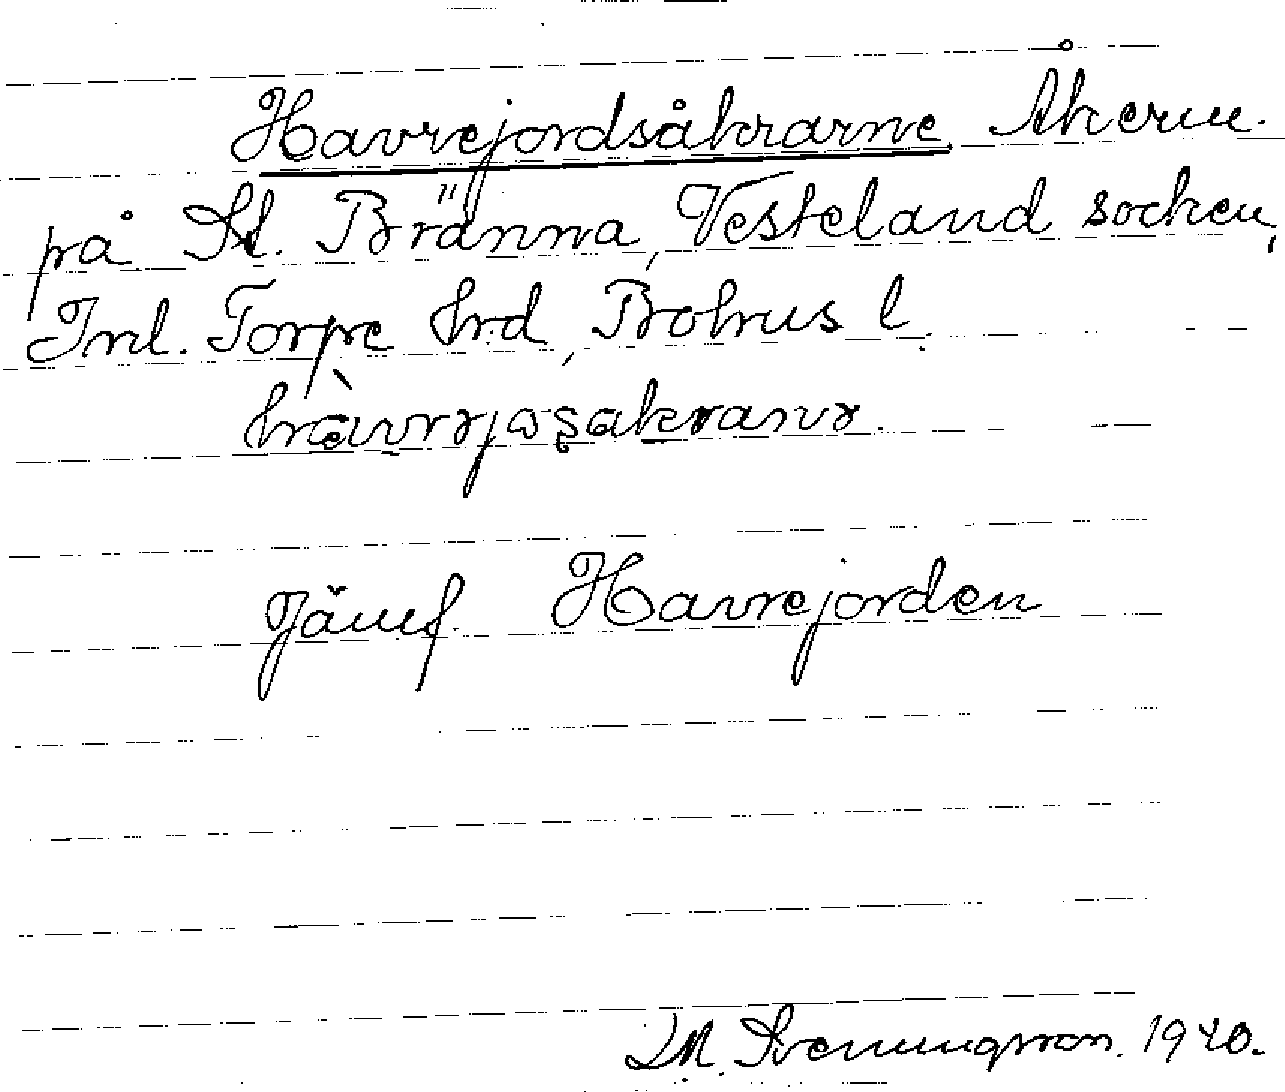 Havrejordsåkrarne, Åkerm.
på St. Bränna, Vesteland socken,
Inl. Torpe hrd, Bohus l.
Jämf. Havrejorden
D.M. Svenungsson. 1940.